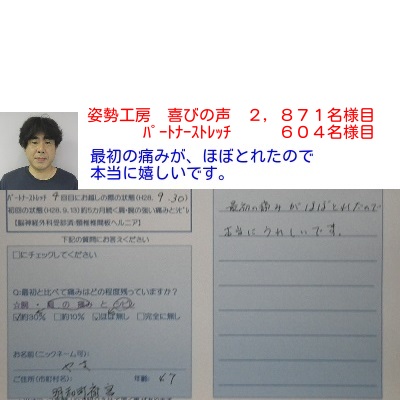 姿勢工房　喜びの声　２，８７１名様目
ﾊﾟｰﾄﾅｰｽﾄﾚｯﾁ　　６０４名様目
最初の痛みが、ほぼとれたので
本当に嬉しいです。
ﾊﾟｰﾄﾅｰｽﾄﾚｯﾁ 4回目にお越しの際の状態(H28. 9 .30)
初回の状態(H28. 9.13)約5カ月続く肩・腕の強い痛みとｼﾋﾞﾚ
【脳神経外科受診済:頸椎椎間板ヘルニア】
下記の質問にお答えください
□にチェックしてください。
Q:最初と比べて痛みはどの程度残っていますか?
☆肩・腕の痛みと
☑約30% □約10% ☑ほぼ無し □完全に無し
お名前(ニックネーム可):
ご住所(市町村名): 年齢: 47
最初の痛みがほぼとれたので
本当にうれしいです。